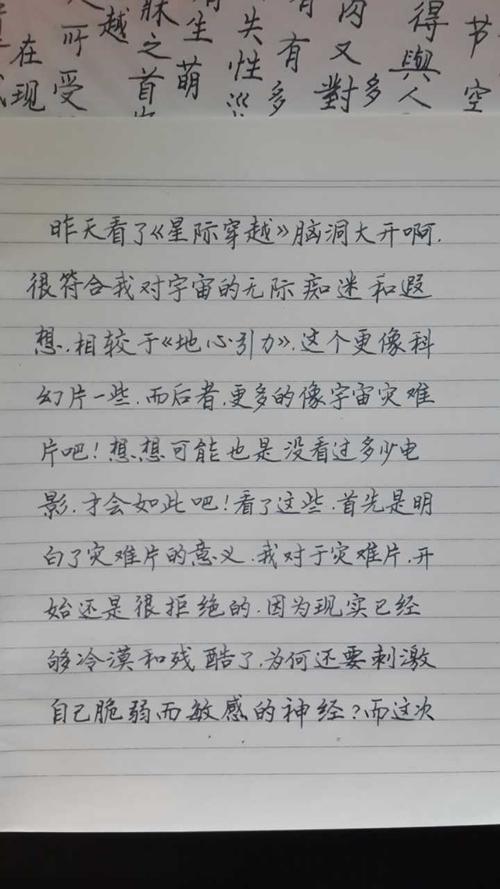 在现
可受
越
脉之首
生萌
失性
有多
内又對多
得與人
节空
昨天看了《星际穿越》脑洞大开啊.
很符合我对宇宙的无际痴迷和遐
想.相较于《地心引力》.这个更像科
幻片一些.而后者.更多的像宇宙灾难
片吧!想想可能也是没看过多少电
影.才会如此吧!看了这些.首先是明
白了灾难片的意义.我对于灾难片.开
始还是很拒绝的.因为现实已经
够冷漠和残酷了.为何还要刺激
自己脆弱而敏感的神经?而这次